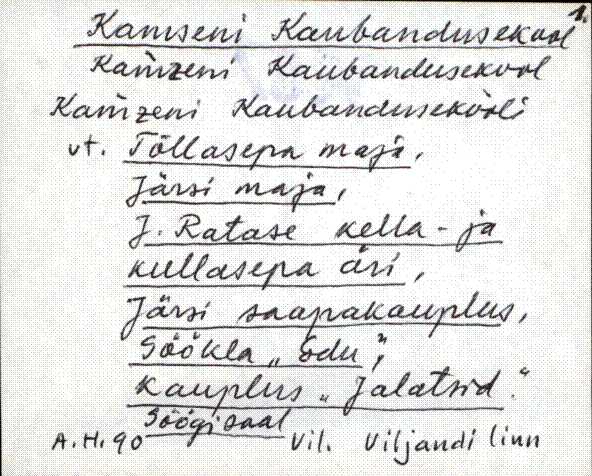 1.
Kamseni Kaubandusekool
Kam̀zeni Kaùbandusekool
Kam̀zeni Kaubandusekòoli
vt. Tõllasepa maja,
Järsi maja,
J. Ratase kella- ja
kullasepa äri,
Järsi saapakauplus,
Söökla „Edu",
Kauplus „Jalatsid".
Söögisaal
A.H. 90 Vil. Viljandi linn